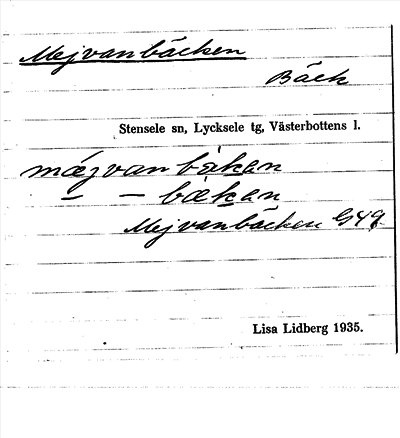 Mejvanbäcken
Bäck
Stensele sn, Lycksele tg, Västerbottens l.
mæjvanbækan
— — bækan
Mejvanbäcken G49
Lisa Lidberg 1935.